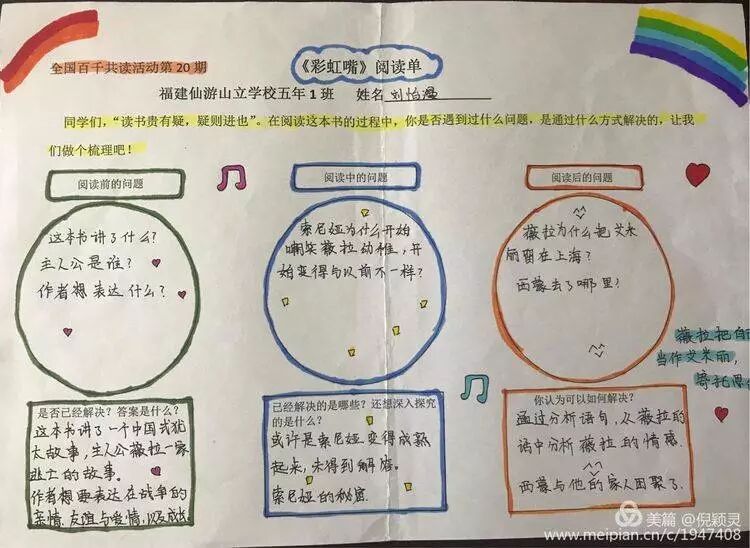 全国百千共读活动第20期
《彩虹嘴》阅读单
福建仙游山立学校五年1班 姓名 刘怡
同学们，“读书贵有疑，疑则进也”。在阅读这本书的过程中，你是否遇到过什么问题，是通过什么方式解决的，让我
们做个梳理吧！
阅读前的问题
这本书讲了什么？
主人公是谁？
作者想表达什么？
阅读中的问题
索尼娅为什么开始
嘲笑薇拉幼稚，开
始变得与以前不一样？
阅读后的问题
薇拉为什么把艾米
丽留在上海？
西蒙去了哪里？
薇拉把自
当作艾米丽，
寄托
是否已经解决？答案是什么？
这本书讲了一个中国式犹
太故事，主人公薇拉一家
逃亡的故事。
作者想要表达在战争的
亲情、友谊与爱情，以及成长
已经解决的是哪些？还想深入探究
的是什么？
或许是索尼娅变得成熟
起来，未得到解答。
索尼娅的秘密.
你认为可以如何解决？
通过分析语句，从薇拉的
话中分析薇拉的情感.
西蒙与他的家人团聚了.
美篇 @倪颖灵
www.meipian.cn/c/1947408